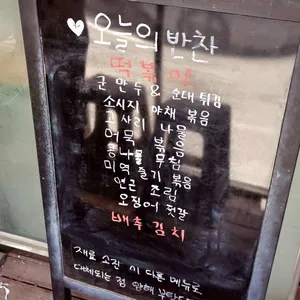 오늘의 반찬
떡볶이
군만두 & 순대 튀김
소시지 야채 볶음
고사리 나물
어묵 볶음
콩나물 무침
미역줄기 볶음
연근 조림
오징어 젓갈
배추김치
재료 소진 시 다른 메뉴로
대체되는 점 양해 부탁